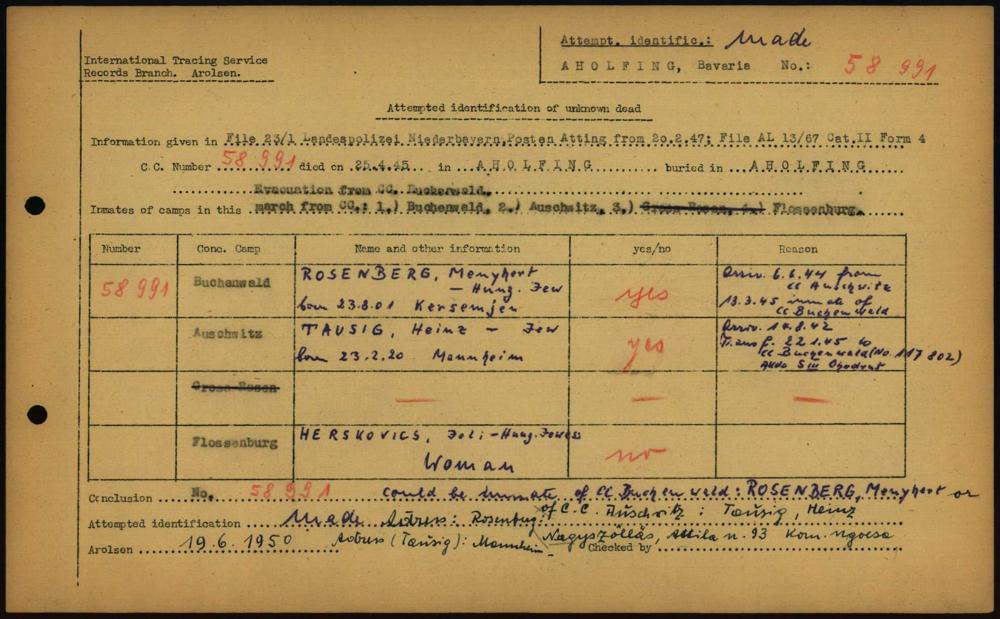 Attempt. identific.: Made
International Tracing Service
Records Branch. Arolsen.
AHOLFING, Bavaria No.: 58 991
Attempted identification of unknown dead
Information given in File 23/1 Landespolizei Niederbayern,Posten Atting from 20.2.47; File AL 13/67 Cat.II Form 4
C.C. Number 58 991 died on 25.4.45 in AHOLFING buried in AHOLFING
Evacuation from CC. Buchenwald
Inmates of camps in this march from CC.: 1.) Buchenwald, 2.) Auschwitz, 3.) Gross-Rosen, 4.) Flossenburg.
Number Conc. Camp Name and other information yes/no Reason
58 991 Buchenwald ROSENBERG, Menyhert yes Arriv. 6.6.44 from
– Hung. Jew cc Auschwitz
born 23.8.01 Kersemjen 13.3.45 inmate of
cc Buchenwald
Auschwitz TAUSIG, Heinz – Jew yes
born 23.2.20 Mannheim Transf. 22.1.45 to
cc Buchenwald (No. 117 802)
AKdo S III Ohrdruf
Gross-Rosen — — —
Flossenburg HERSKOVICS, Joli – Hung. Jewess
Woman no
Conclusion No. 58 991 could be inmate of CC Buchenwald: ROSENBERG, Menyhert or
of C.C. Auschwitz: Tausig, Heinz
Attempted identification Made Adress: Rosenberg:
Nagyszöllös, Attila u. 93
Arolsen 19.6.1950 Adress (Tausig): Mannheim Checked by